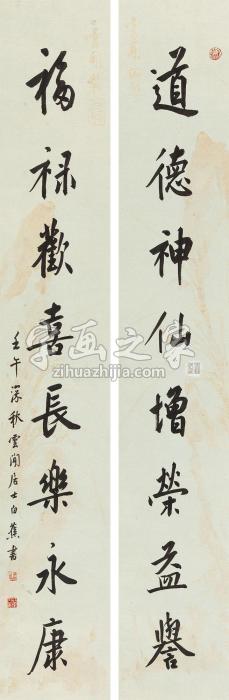 道德神仙增榮益譽
福祿歡喜長樂永康
壬午深秋雲間居士白蕉書
字画之家
zihuazhijia.com